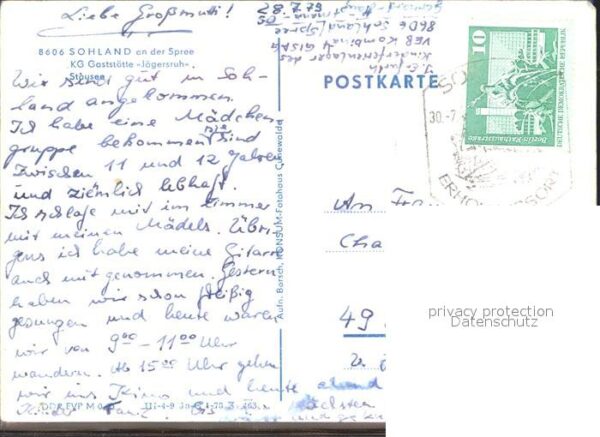 Liebe Großmutti!
8606 SOHLAND an der Spree
KG Gaststätte »Jägersruh«,
Stausee
Wir sind gut in Soh-
land angekommen.
Ich habe eine Mädchen
gruppe bekommen sie sind
zwischen 11 und 12 Jahren
und ziemlich lebhaft.
Ich schlafe mit im Zimmer
mit meinen Mädels. Übri-
gens ich habe meine Gitarre
auch mit genommen. Gestern
haben wir schon fleißig
gesungen und heute waren
wir von 9⁰⁰ - 11⁰⁰ Uhr
wandern. Ab 15⁰⁰ Uhr gehen
wir ins Kino und heute abend
Bis
nächsten
DDR EVP M 0,
III-4-9
Aufn. Bartsch, KONSUM-Fotohaus Cunewalde
8606 Sohland/Spree
VEB Kombinat
Kinderferienlager des
POSTKARTE
10
Berlin-Rathausstraße
DEUTSCHE DEMOKRATISCHE REPUBLIK
30.-7.
An Fr
Cha
49
privacy protection
Datenschutz